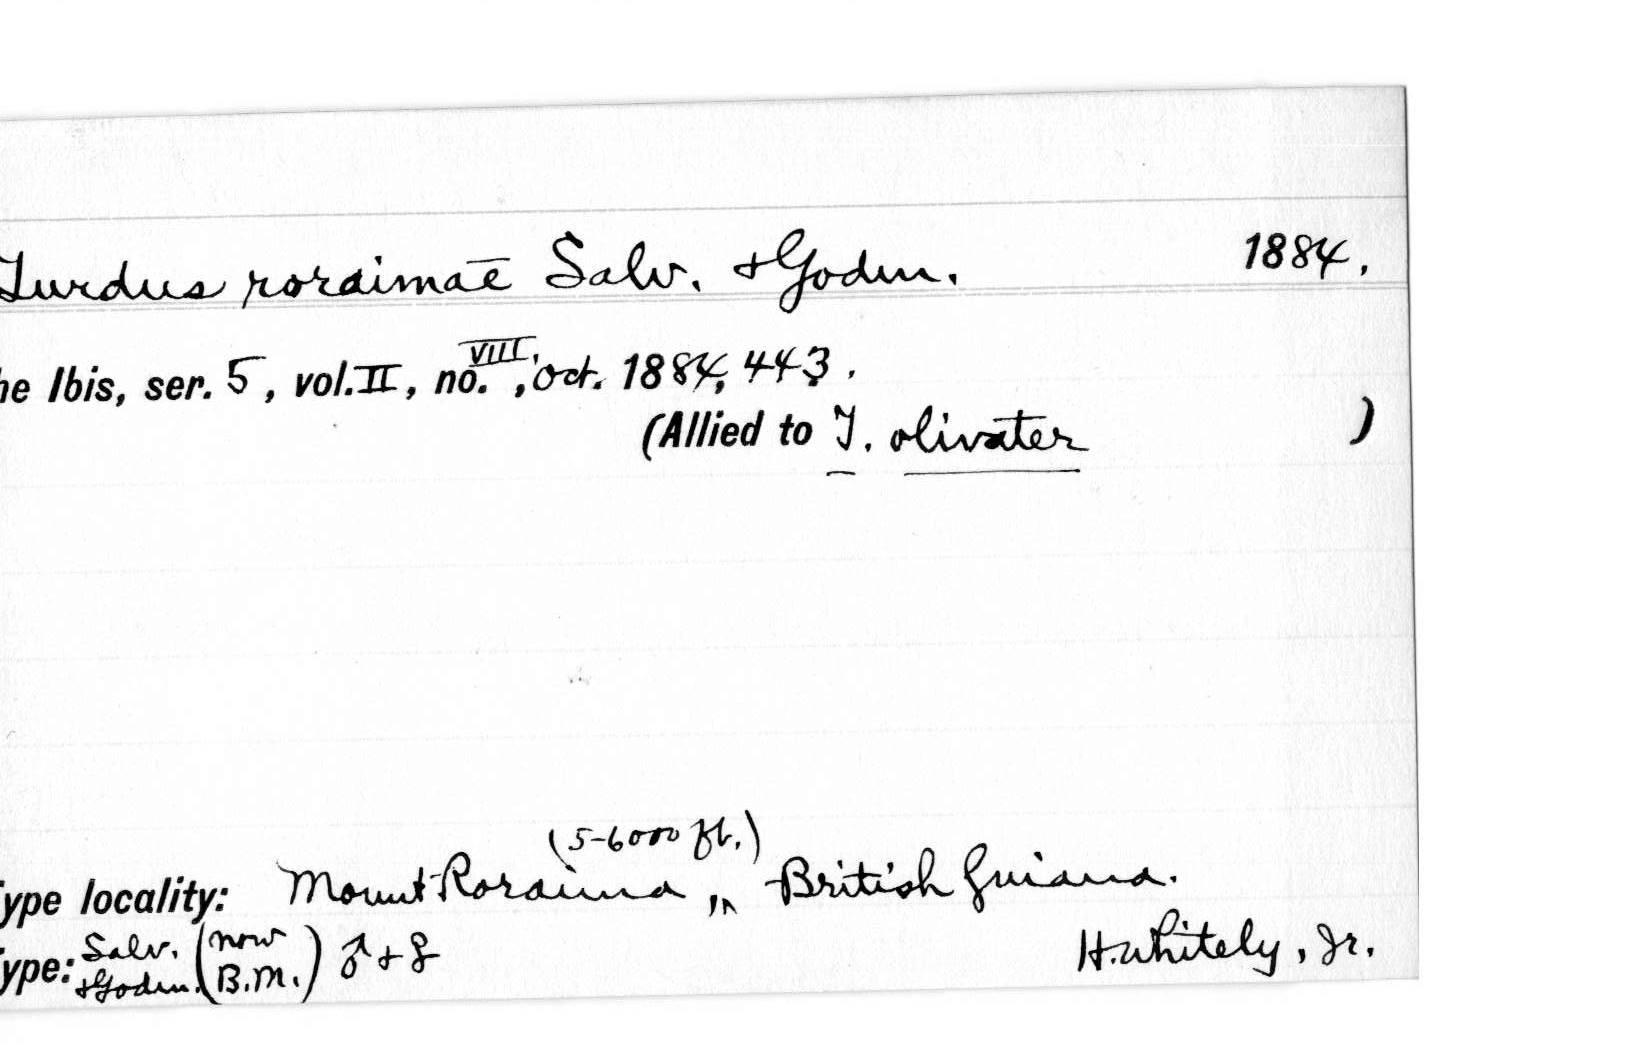 Turdus roraimae Salv. & Godm. 1884.
he Ibis, ser. 5, vol. II, no. VIII, Oct. 1884, 443.
(Allied to T. olivater )
(5-6000 ft.)
ype locality: Mount Roraima, British Guiana.
ype: Salv. & Godm. (now B.M.) ♂ + ♀ H. Whitely, Jr.